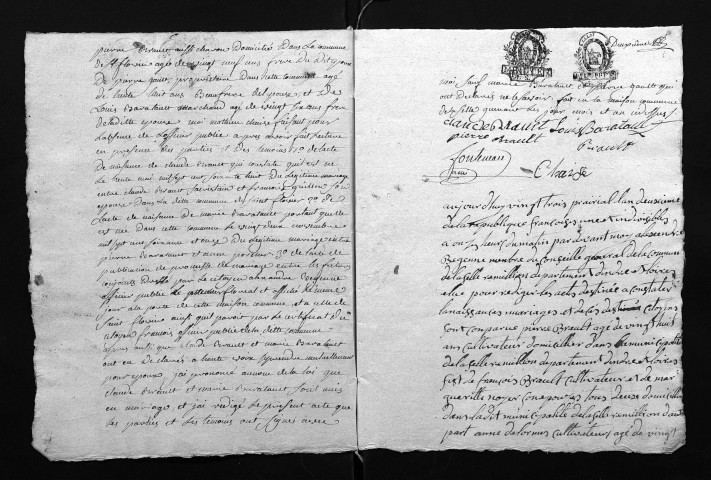 pierre Brault aussi charon domicilié dans la commune
de St florier agé de vingt neuf ans frere du dit epoux
de pierre gault, propriettaire dans cette commune agé
de trente huit ans Beaufrere de l'epouse, et De
Louis Baratault marchand agé de vingt six ans frere
de la ditte epouse moi mathurin chaise faisant pour
l'absence de l'officier public apres avoir fait lecture
en presence des parties et des temoins 1° de lacte
de naissance de claude Brault qui constate qu'il est né
le trente mai mil sept cent soixante huit du legitime mariage
entre claude Brault sacristain et francoise son
epouse dans la ditte commune de saint florier 2° de
lacte de naissance de marie Baratault portant quelle
est née dans cette commune le vingt deux novembre
mil sept cent soixante et onze du legitime mariage entre
pierre Baratault et anne 3° de lacte de
publication de promesse de mariage entre les futurs
conjoints dressé par le citoyen alexandre Begenne
officier public le floreal et affiché le même
jour a la porte de cette maison commune, et a celle de
Saint florier ainsi qu'il paroit par le certificat du
citoyen francois officier public de la ditte commune
apres aussi que claude Brault et marie Baratault
ont eu declaré a haute voix se prendre mutuellement
pour epoux j'ai prononcé au nom de la loi que
claude Brault et marie Baratault sont unis
en mariage et j'ai redigé le present acte que
les parties et les temoins ont signé avec
Deuxieme
moi sauf marie Baratault et pierre gault qui
ont declaré ne le savoir fait en la maison commune
de la selle les jour mois et an cy dessus
claude Brault Louis Baratault
pierre Brault
Brault
fonteneau
Chaise
aujourd'huy vingt trois prairial lan deuxieme
de la republique francoise une et indivisible
a onze heures du matin par devant moy alexandre
Begenne membre du Conseille general de la commune
de la selle remillion departement dindre et loire
elue pour rediger les actes destiné a constater
la naissances mariages et deces des citoiens
sont comparue pierre Brault agé de vingt huit
ans cultivateur domicillier dans la municipalité
de la selle remillion departement dindre et loire
fist de francois Brault cultivateur et de mar
queritte noyer son epouse tous deux domicilier
dans la dit municipalité de la selle remillion dautre
part anne delorme cultivateur agé de vingt